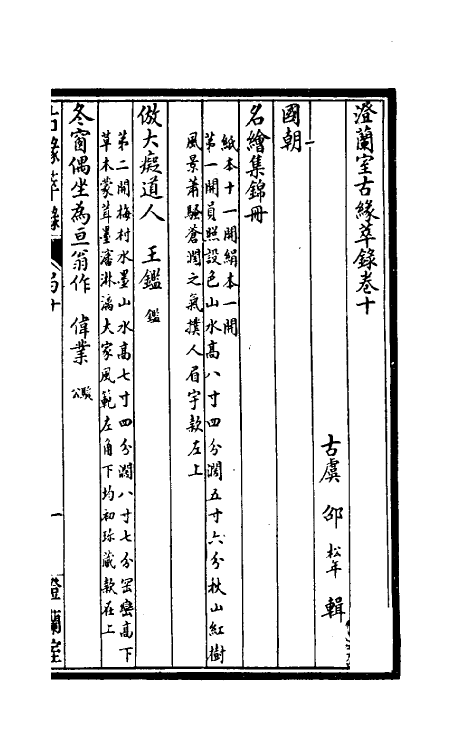 澄蘭室古緣萃錄卷十
古虞 邵松年 輯
國朝
名繪集錦冊
紙本十一開絹本一開
第一開員照設色山水高八寸四分濶五寸六分秋山紅樹
風景蕭騷蒼潤之氣撲人眉宇款左上
倣大癡道人 王鑑 鑑
第二開梅村水墨山水高七寸四分濶八寸七分罡巒高下
草木蒙茸墨瀋淋漓大家風範左角下均初珍藏款在上
冬窗偶坐為亘翁作 偉業
古緣萃錄 卷十 一 澄蘭室